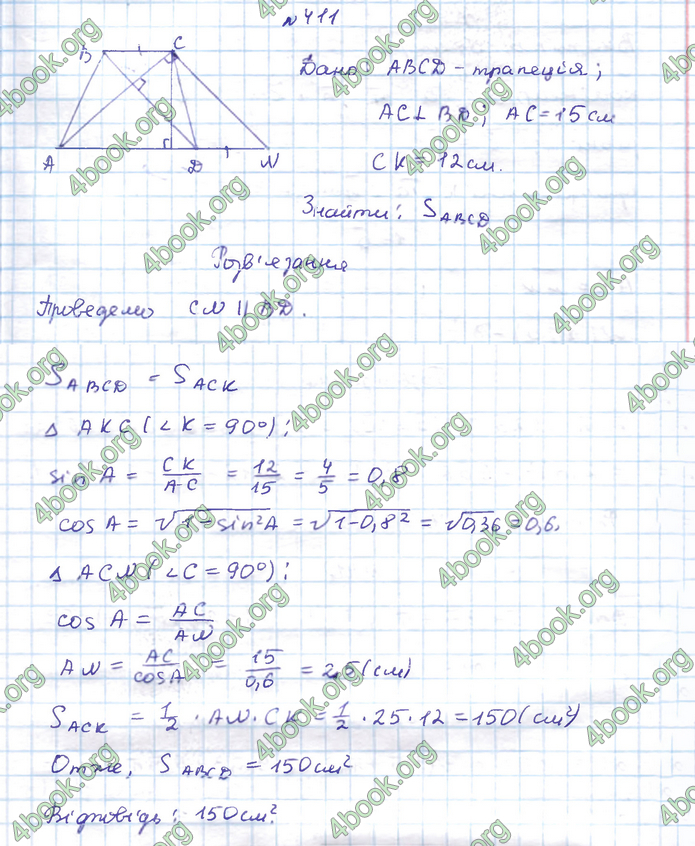 № 411
B C
A D N
Дано: ABCD - трапеція;
AC ⊥ BD; AC = 15 см
CK = 12 см.
Знайти: S ABCD
Розв'язання
Проведемо CN || BD.
S ABCD = S ACK
Δ AKC (∠K = 90°);
sin A = CK/AC = 12/15 = 4/5 = 0,8
cos A = √1-sin²A = √1-0,8² = √0,36 = 0,6.
Δ ACN (∠C = 90°);
cos A = AC/AN
AN = AC/cosA = 15/0,6 = 25 (см)
S ACK = 1/2 · AN · CK = 1/2 · 25 · 12 = 150 (см²)
Отже, S ABCD = 150 см²
Відповідь: 150 см².
4book.org